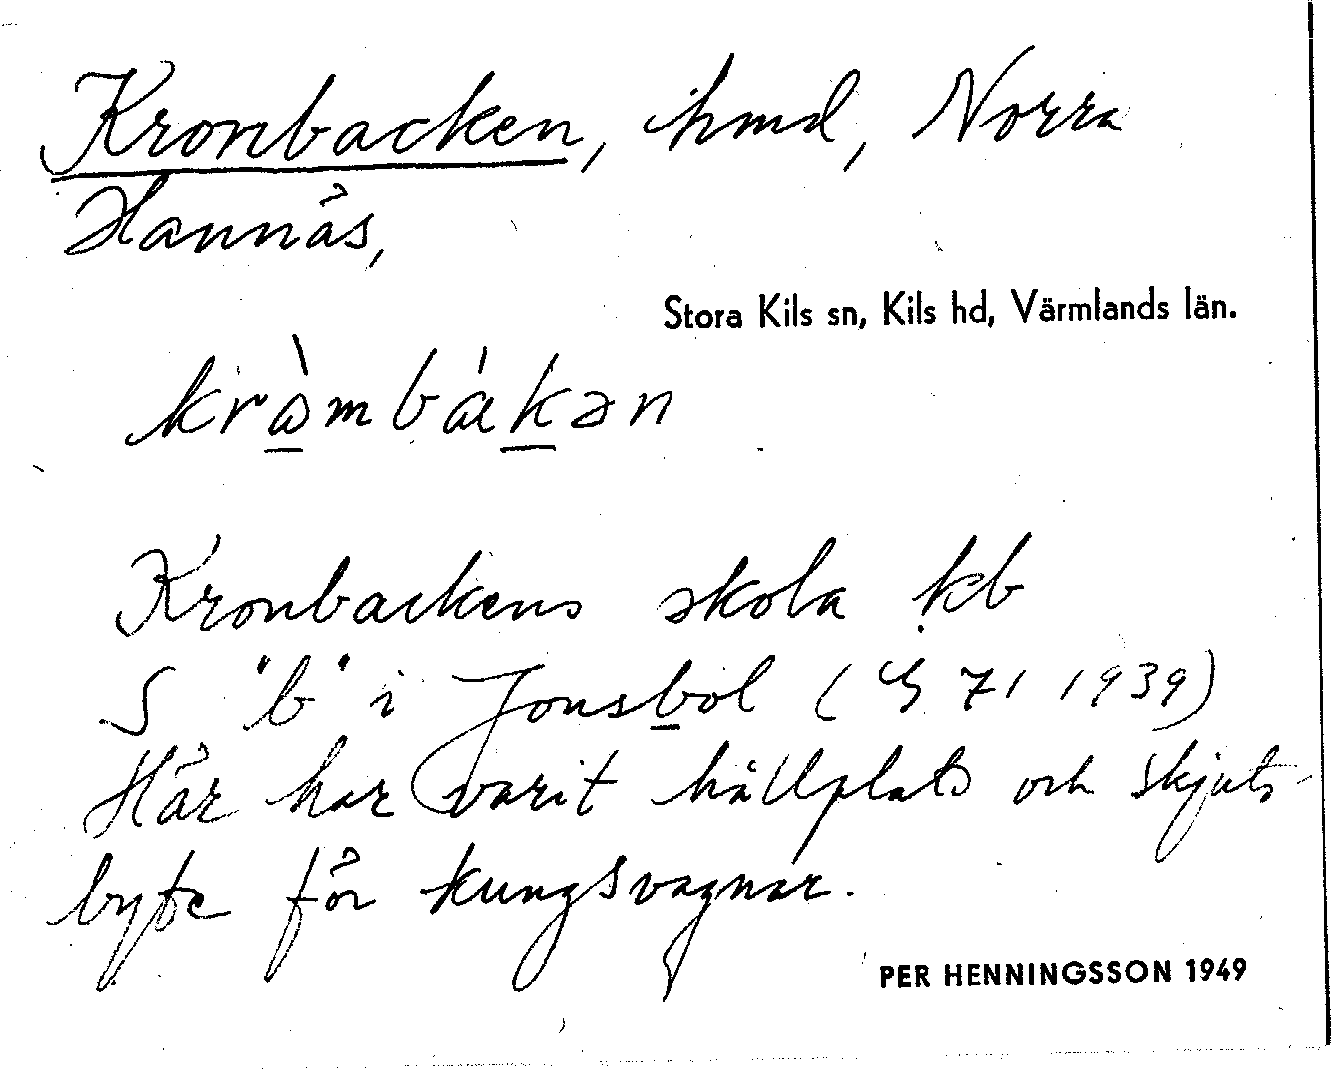 Kronbacken, ihmd, Norra
Hannäs,
Stora Kils sn, Kils hd, Värmlands län.
kròmbákən
Kronbackens skola kb
S "b" i Jonsbol ( 71 1939)
Här har varit hållplats och skjuts-
byte för kungsvagnar.
PER HENNINGSSON 1949